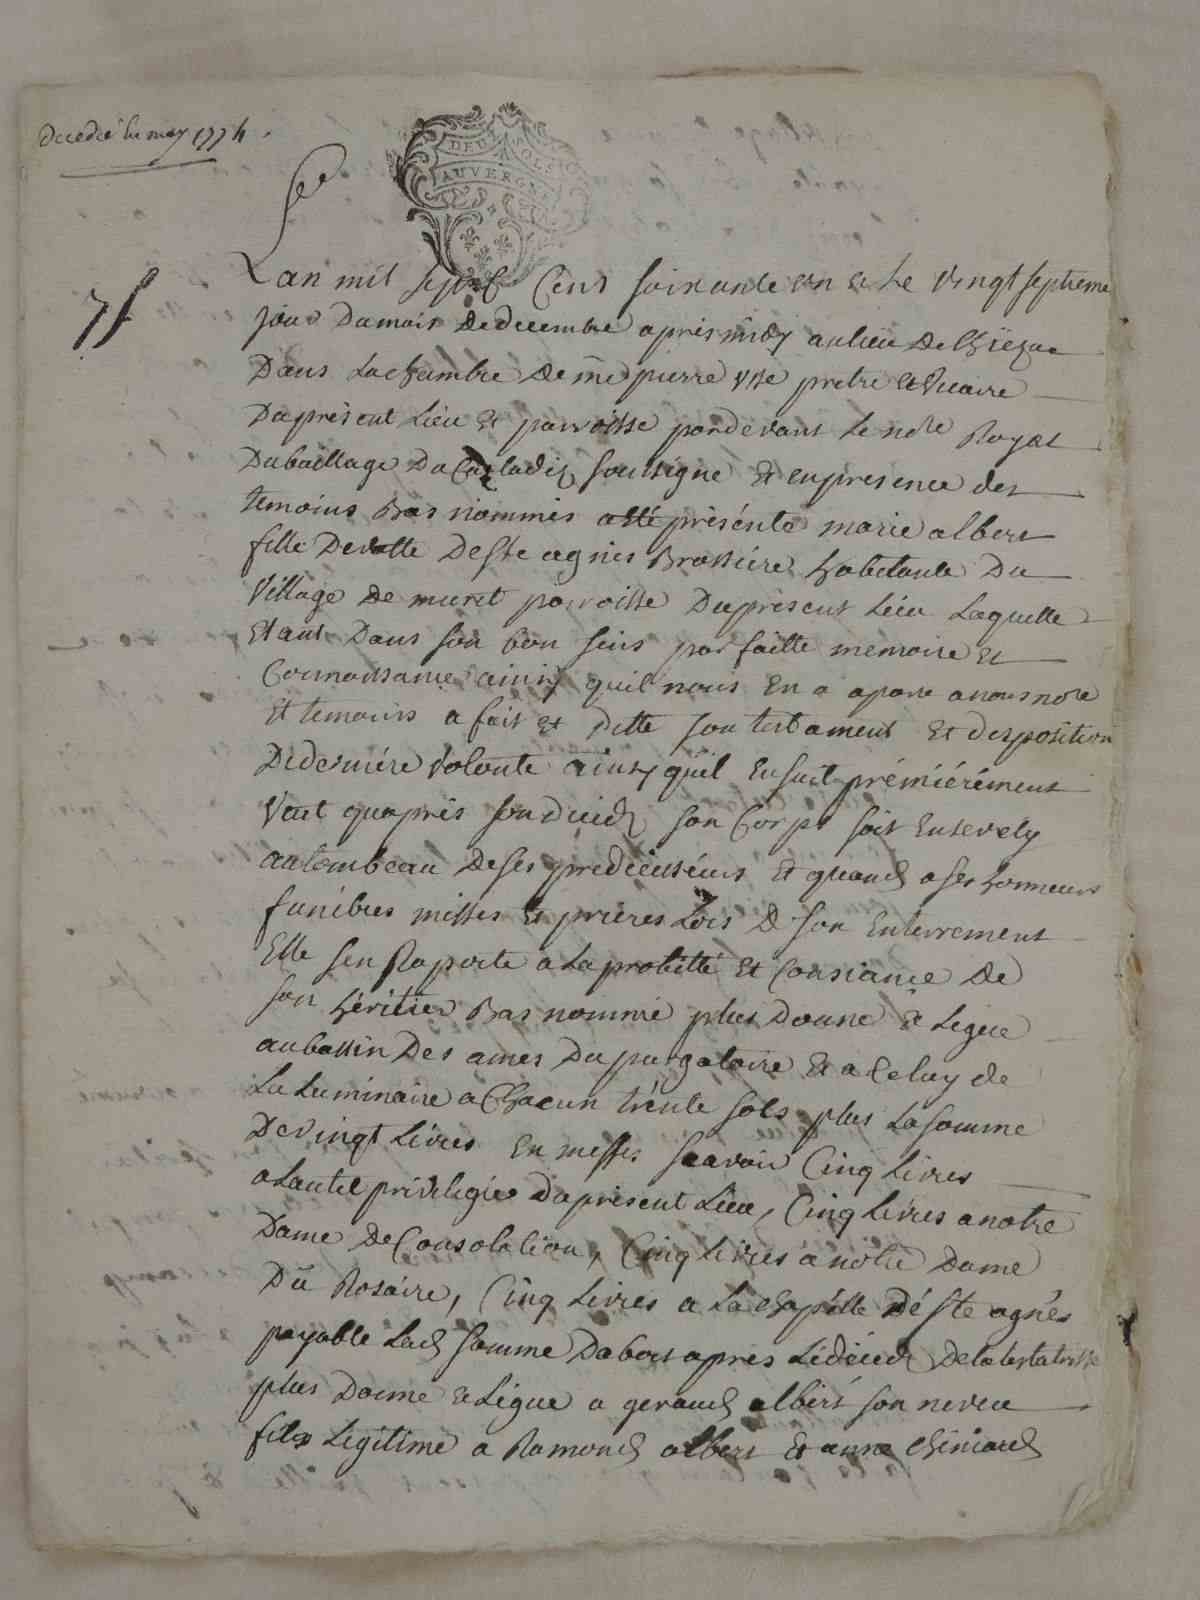 Decedée le may 1774.
DEUX SOLS
AUVERGNE
Lan mil sept Cent soixante un et Le vingt septieme
jour Dumois de decembre apres midy aulieu de
Dans Lachambre de me pierre pretre et vicaire
Dupresent Lieu et parroisse pardevant Le nore Royal
Dubaillage Du Carladez soussigné et enpresence des
temoins Bas nommés a été présénté marie albert
fille Devotte De ste agnes Brassiere habitante Du
village de muret parroisse Dupresent Lieu Laquelle
Etant Dans son bon sens parfaitte memoire et
Connoissance ainsy quil nous En a aparu anous nore
Et temoins a fait et ditte son testament Et disposition
Dederniére volonté ainsy quil Ensuit prémiérément
veut quaprés son deced son Corps soit Ensevely
autombeau De ses predecesseurs et quand a ses honneurs
funébres messes et prieres Lors de son Enterrement
Elle sen Raporte a La probitté et Consiance de
son héritier Bas nommé plus Donne et Legue
aubassin Des ames Du purgatoire et a Celuy de
La Luminaire a Chacun trénte sols plus La somme
De vingt Livres En messes scavoir Cinq Livres
a Lautel privilegié Dupresent Lieu, Cinq Livres a notre
Dame de Consolation, Cinq Livres a notre Dame
Du Rosaire, Cinq Livres a La chapélle dé ste agnés
payable Lad somme Dabort apres Lédéced Dela testatrisse
plus Donne et Légue a geraud albert son neveu
fils Légitime a Ramond albert et anne